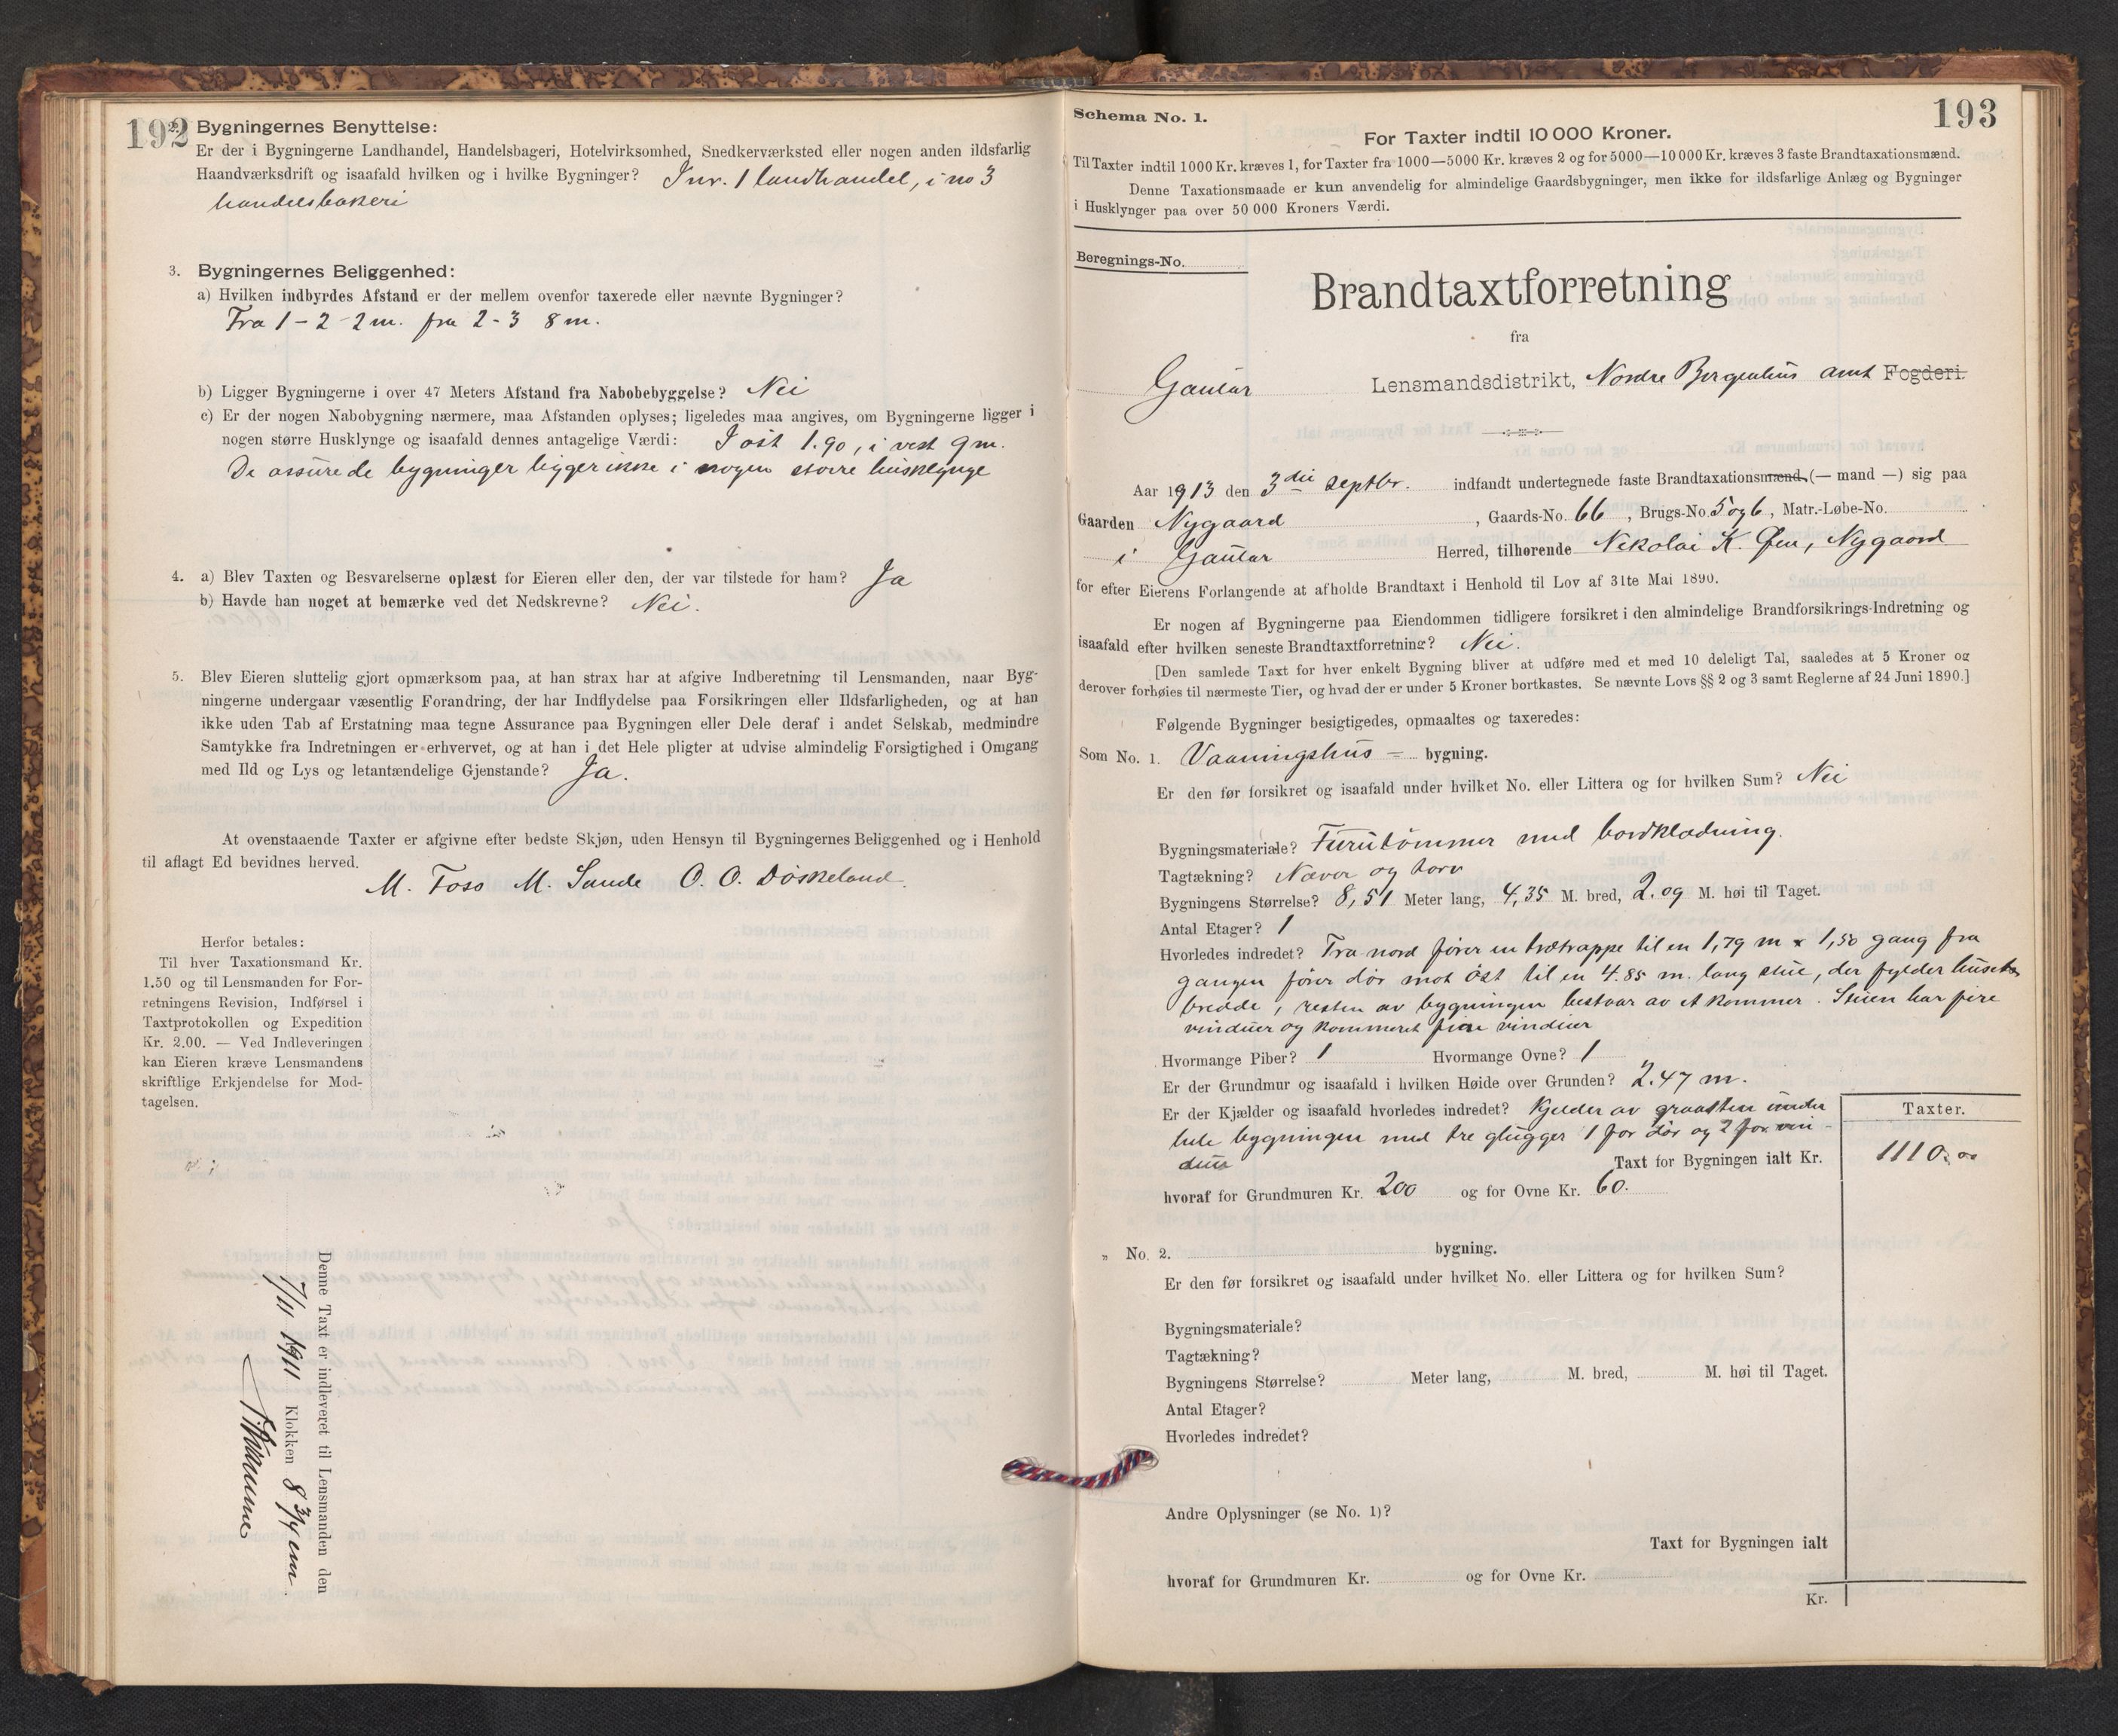 192
2. Bygningernes Benyttelse:
Er der i Bygningerne Landhandel, Handelsbageri, Hotelvirksomhed, Snedkerværksted eller nogen anden ildsfarlig
Haandværksdrift og isaafald hvilken og i hvilke Bygninger? I nr. 1 landhandel, i no 3
handelsbakeri
3. Bygningernes Beliggenhed:
a) Hvilken indbyrdes Afstand er der mellem ovenfor taxerede eller nævnte Bygninger?
Fra 1 - 2 - 2 m. fra 2 - 3 8 m.
b) Ligger Bygningerne i over 47 Meters Afstand fra Nabobebyggelse? Nei
c) Er der nogen Nabobygning nærmere, maa Afstanden oplyses; ligeledes maa angives, om Bygningerne ligger i
nogen større Husklynge og isaafald dennes antagelige Værdi: I øst 1.90, i vest 9 m.
De assurede bygninger ligger ikke i nogen større husklynge
4. a) Blev Taxten og Besvarelserne oplæst for Eieren eller den, der var tilstede for ham? Ja
b) Havde han noget at bemærke ved det Nedskrevne? Nei.
5. Blev Eieren sluttelig gjort opmærksom paa, at han strax har at afgive Indberetning til Lensmanden, naar Byg-
ningerne undergaar væsentlig Forandring, der har Indflydelse paa Forsikringen eller Ildsfarligheden, og at han
ikke uden Tab af Erstatning maa tegne Assurance paa Bygningen eller Dele deraf i andet Selskab, medmindre
Samtykke fra Indretningen er erhvervet, og at han i det Hele pligter at udvise almindelig Forsigtighed i Omgang
med Ild og Lys og letantændelige Gjenstande? Ja.
At ovenstaaende Taxter er afgivne efter bedste Skjøn, uden Hensyn til Bygningernes Beliggenhed og i Henhold
til aflagt Ed bevidnes herved.
M. Foso M. Sande O. O. Døskeland.
Herfor betales:
Til hver Taxationsmand Kr.
1.50 og til Lensmanden for For-
retningens Revision, Indførsel i
Taxtprotokollen og Expedition
Kr. 2.00. — Ved Indleveringen
kan Eieren kræve Lensmandens
skriftlige Erkjendelse for Mod-
tagelsen.
Denne Taxt er indleveret til Lensmanden den
7/11 1911 Klokken 8 3/4 em
193
Schema No. 1.
For Taxter indtil 10 000 Kroner.
Til Taxter indtil 1000 Kr. kræves 1, for Taxter fra 1000—5000 Kr. kræves 2 og for 5000—10 000 Kr. kræves 3 faste Brandtaxationsmænd.
Denne Taxationsmaade er kun anvendelig for almindelige Gaardsbygninger, men ikke for ildsfarlige Anlæg og Bygninger
i Husklynger paa over 50 000 Kroners Værdi.
Beregnings-No.
Brandtaxtforretning
fra
Gaular Lensmandsdistrikt, Nordre Bergenhus amt Fogderi.
Aar 1913 den 3die septbr. indfandt undertegnede faste Brandtaxationsmænd (— mand —) sig paa
Gaarden Nygaard, Gaards-No. 66, Brugs-No. 5 og 6, Matr.-Løbe-No.
i Gaular Herred, tilhørende Nikolai K. Øen, Nygaard
for efter Eierens Forlangende at afholde Brandtaxt i Henhold til Lov af 31te Mai 1890.
Er nogen af Bygningerne paa Eiendommen tidligere forsikret i den almindelige Brandforsikrings-Indretning og
isaafald efter hvilken seneste Brandtaxtforretning? Nei.
[Den samlede Taxt for hver enkelt Bygning bliver at udføre med et med 10 deleligt Tal, saaledes at 5 Kroner og
derover forhøies til nærmeste Tier, og hvad der er under 5 Kroner bortkastes. Se nævnte Lovs §§ 2 og 3 samt Reglerne af 24 Juni 1890.]
Følgende Bygninger besigtigedes, opmaaltes og taxeredes:
Som No. 1. Vaaningshus = bygning.
Er den før forsikret og isaafald under hvilket No. eller Littera og for hvilken Sum? Nei
Bygningsmateriale? Furutømmer med bordklædning.
Tagtækning? Næver og torv
Bygningens Størrelse? 8,51 Meter lang, 4,35 M. bred, 2.09 M. høi til Taget.
Antal Etager? 1
Hvorledes indredet? Fra nord fører en trætrappe til en 1,79 m x 1,50 gang fra
gangen fører dør mot øst til en 4.85 m. lang stue, der fylder husets
bredde, resten av bygningen bestaar av et kammer. Stuen har fire
vinduer og kammeret fire vinduer
Hvormange Piber? 1 Hvormange Ovne? 1
Er der Grundmur og isaafald i hvilken Høide over Grunden? 2.47 m.
Er der Kjælder og isaafald hvorledes indredet? Kjelder av graasten under
hele bygningen med tre glugger 1 for dør og 2 for vin-
duer Taxt for Bygningen ialt Kr.
Taxter.
1110.00
hvoraf for Grundmuren Kr. 200 og for Ovne Kr. 60.
„ No. 2. bygning.
Er den før forsikret og isaafald under hvilket No. eller Littera og for hvilken Sum?
Bygningsmateriale?
Tagtækning?
Bygningens Størrelse? Meter lang, M. bred, M. høi til Taget.
Antal Etager?
Hvorledes indredet?
Andre Oplysninger (se No. 1)?
Taxt for Bygningen ialt
hvoraf for Grundmuren Kr. og for Ovne Kr.
Kr.